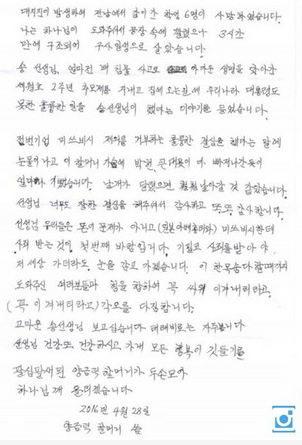 대지진이 발생하여 전남에서 같이간 학생 6명이 사망하였습니다.
나는 하나님이 도와주셔서 흙장 속에 깔렸으나 3시간
만에 구조되어 구사일생으로 살았습니다.
송 선생님, 얼마전 배 침몰 사고로 아까운 생명을 앗아간
세월호 2주년 추모제를 지내고 집에 오는길에 우리나라 대통령도
못한 훌륭한 일을 송선생님이 했다는 이야기를 들었습니다.
전범기업 미쓰비시 제의를 거부하는 훌륭한 결심을 했다는 말에
눈물이 나고 이 할머니 가슴에 박힌 큰 대못이 다 빠져나간듯이
얼마나 기뻤습니다. 날개가 달렸으면 훨훨 날아갈 것 같았습니다.
선생님 너무도 장한 결심을 해주셔서 감사하고 또 또 감사합니다.
선생님 우리들은 돈이 문제가 아니고 (일본 아베총리와) 미쓰비시한테
사죄 받는 것이 첫번째 바람입니다. 기필코 사죄를 받아야
저 세상 가더라도 눈을 감고 가겠습니다. 이 한 목숨 다 할때까지
도와주신 여러분들과 힘을 합하여 꼭 싸워 이겨내리라고,
(꼭 이겨내리라고) 각오를 다짐합니다.
고마운 송선생님 보고싶습니다 텔레비로는 자주봅니다
선생님 건강 또 건강하시고 가내 모든 행복이 깃들기를
팔십팔세된 양금덕 할머니가 두손모아
하나님께 올리겠습니다.
2016년 4월 28일
양금덕 할머니 씀